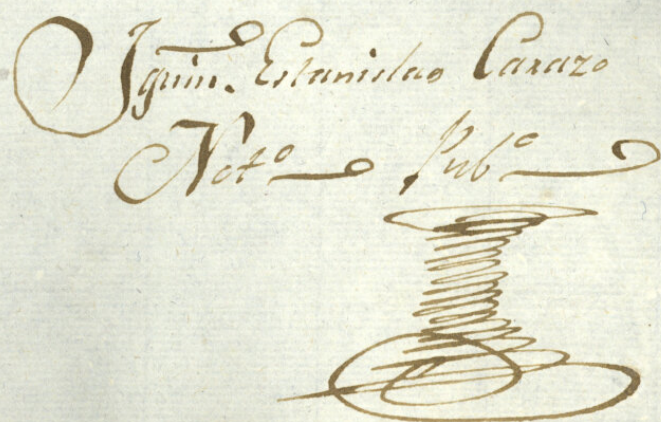 Jquin. Estanislao Carazo
Notº Pubº